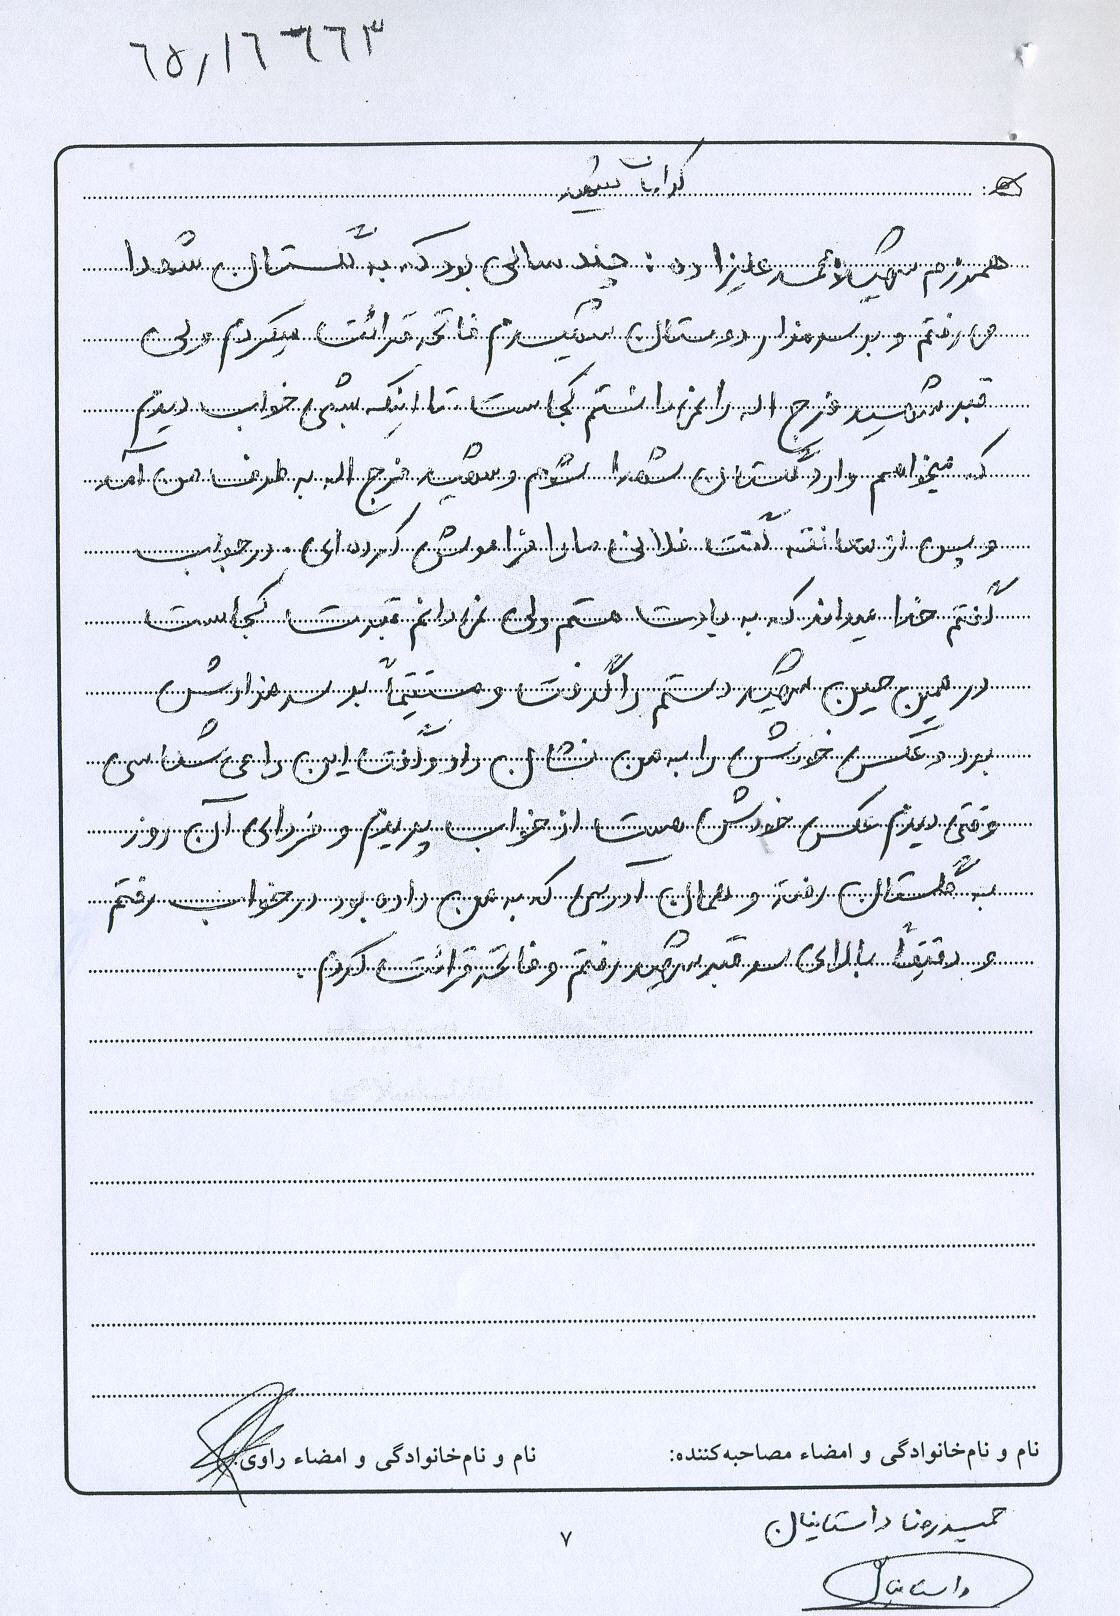 ٦٥/١٦٦٦٣
کرامات شهید
همرزم شهید علیزاده : چند سالی بود که به گلستان شهدا
می رفتم و بر سر مزار دوستان شهیدم فاتحه قرائت میکردم ولی
قبر شهید فرج اله را نمی دانستم کجاست تا اینکه شبی خواب دیدم
که میخواهم وارد گلستان شهدا شوم و شهید فرج اله به طرف من آمد
و پس از معانقه گفت فلانی ما را فراموش کرده ای . در جواب
گفتم خدا میداند که به یادت هستم ولی نمی دانم قبرت کجاست
در همین حین شهید دستم را گرفت و مستقیماً بر سر مزارش
برد و عکس خودش را به من نشان داد و گفت این را می شناسی
وقتی دیدم عکس خودش هست از خواب پریدم و فردای آن روز
به گلستان رفته و همان آدرسی که به من داده بود در خواب رفتم
و دقیقاً بالای سر قبر شهید رفتم و فاتحه قرائت کردم .
نام و نام‌خانوادگی و امضاء مصاحبه‌کننده: نام و نام‌خانوادگی و امضاء راوی:
حمیدرضا داستانیان
۷